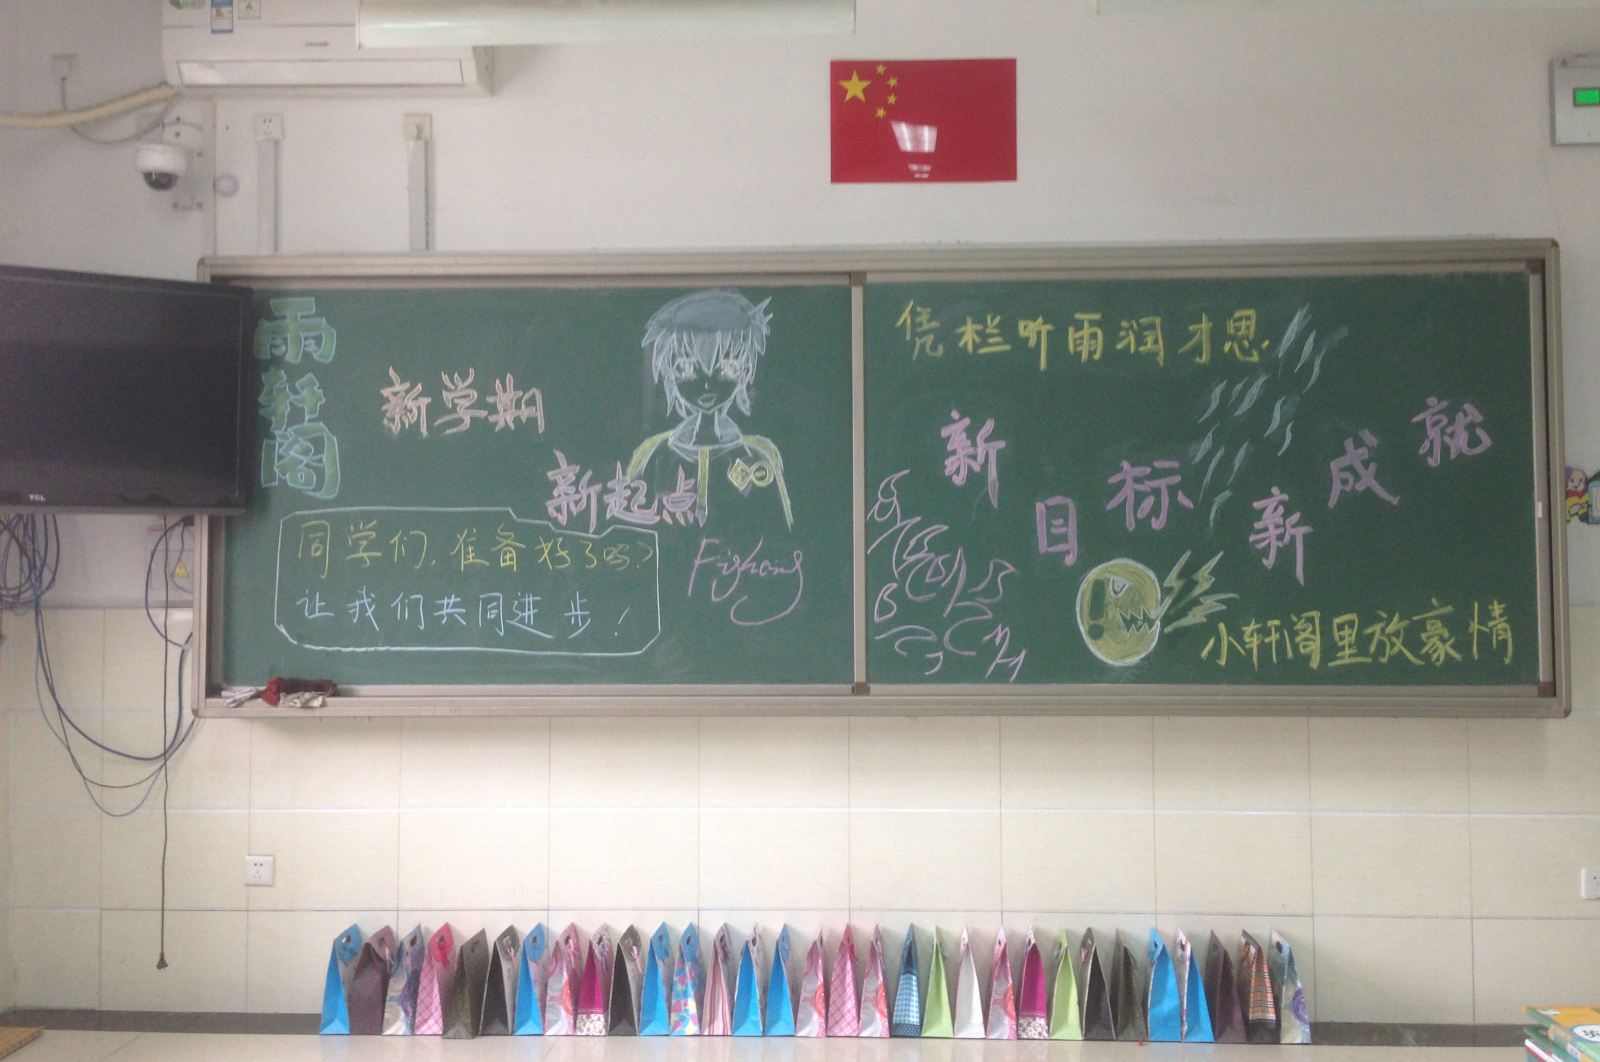 雨轩阁
新学期
新起点
同学们,准备好了吗?
让我们共同进步!
凭栏听雨润才思
新目标新成就
小轩阁里放豪情
TCL